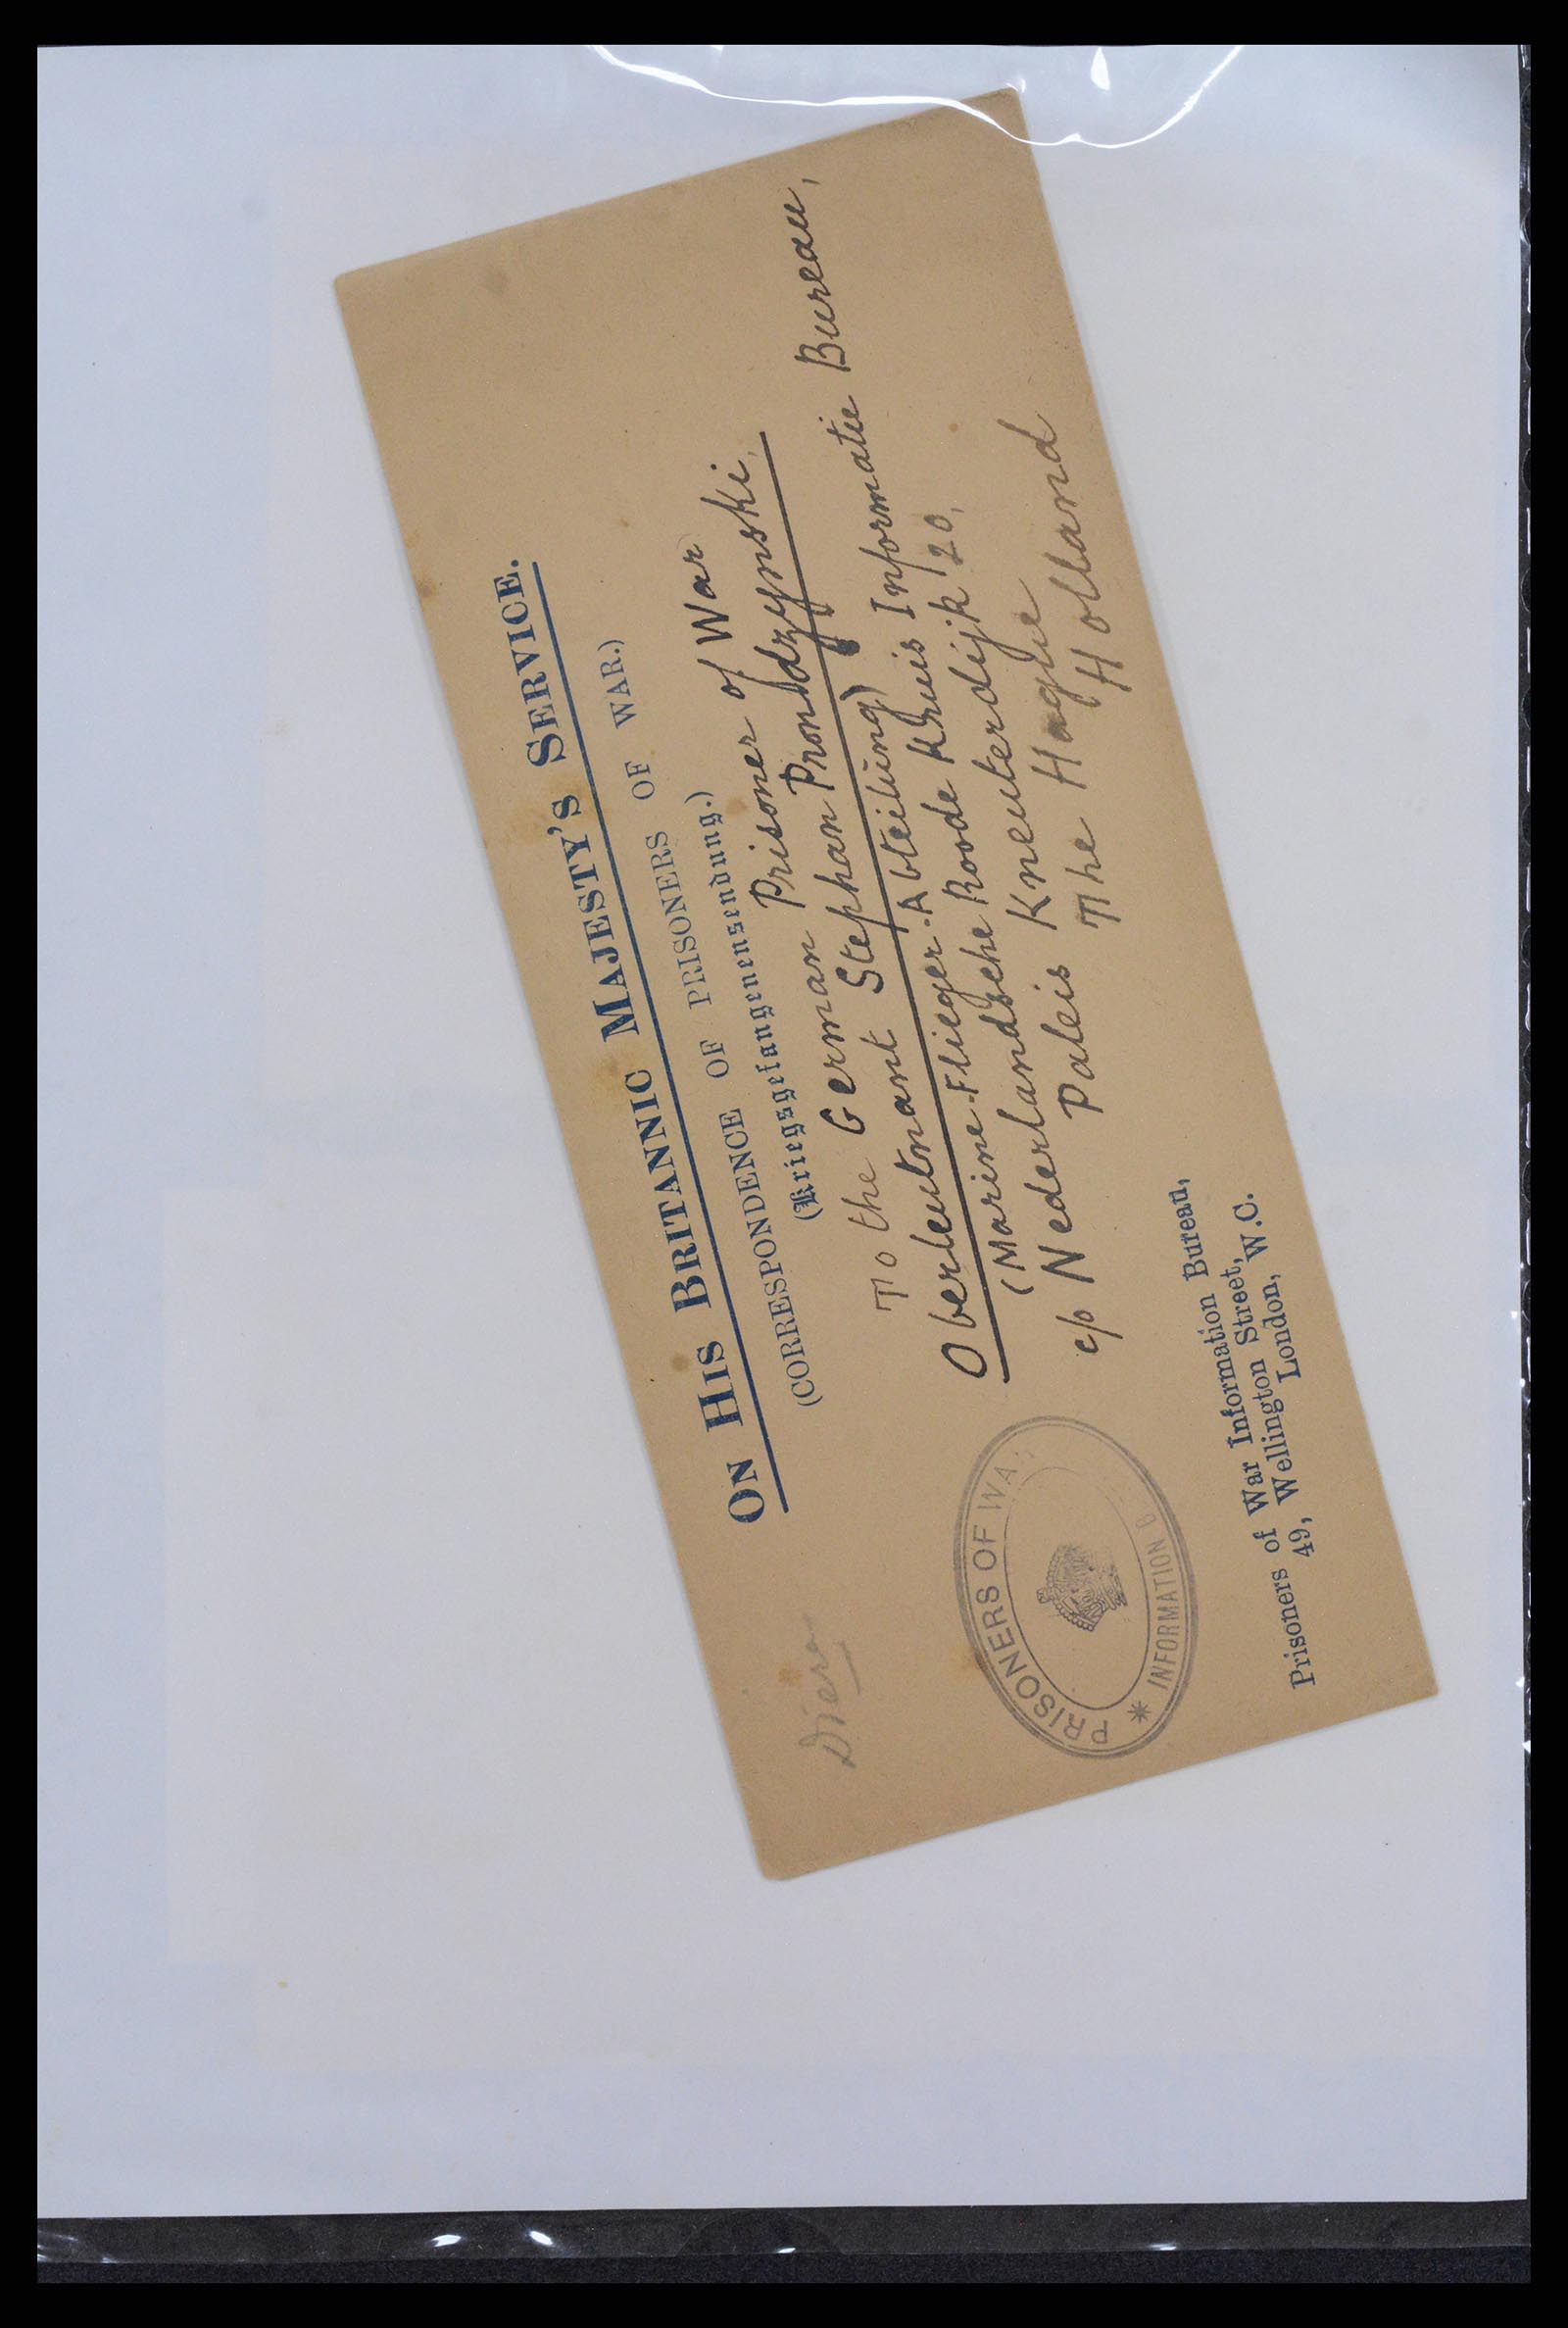 ON HIS BRITANNIC MAJESTY'S SERVICE.
(CORRESPONDENCE OF PRISONERS OF WAR.)
(Kriegsgefangenensendung.)
To the German Prisoner of War
Oberleutnant Stephan Prondzynski,
(Marine-Flieger-Abteilung)
c/o Nederlandsche Roode Kruis Informatie Bureau,
Paleis Kneuterdijk 20,
The Hague
Holland
PRISONERS OF WA
* INFORMATION B
Prisoners of War Information Bureau,
49, Wellington Street,
London, W.C.